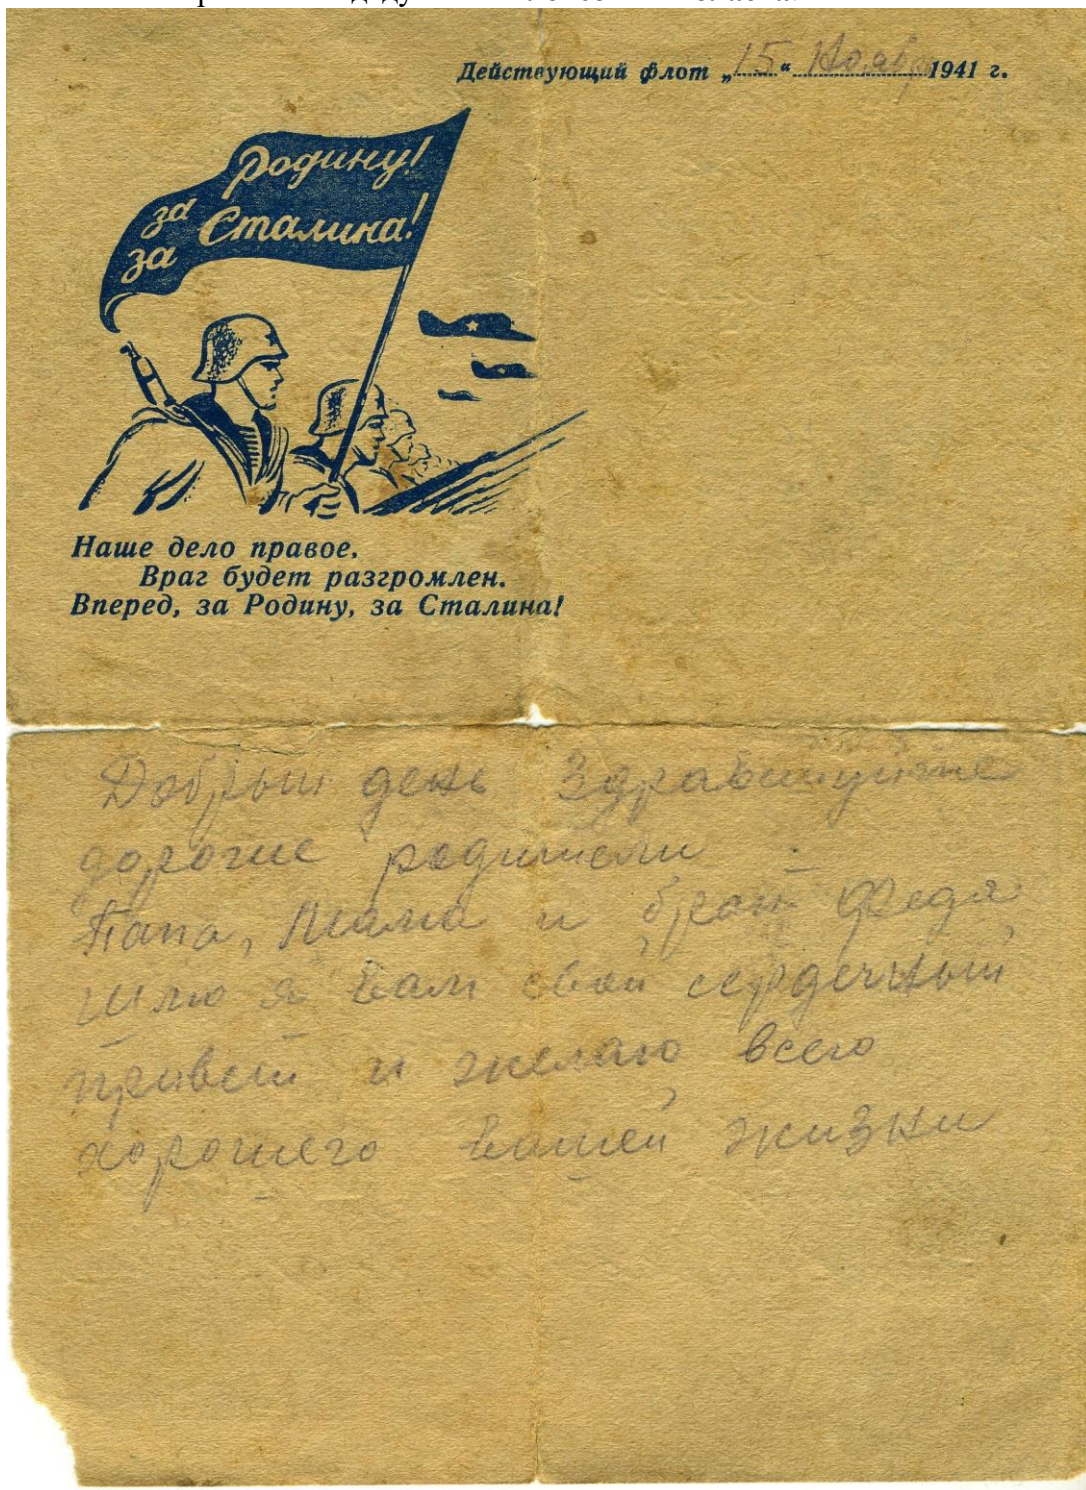 Действующий флот „15“ Ноября 1941 г.
за Родину!
за Сталина!
Наше дело правое.
Враг будет разгромлен.
Вперед, за Родину, за Сталина!
Добрый день Здравствуйте
дорогие родители
Папа, Мама и брат Федя
шлю я вам свой сердечный
привет и желаю всего
хорошего вашей жизни